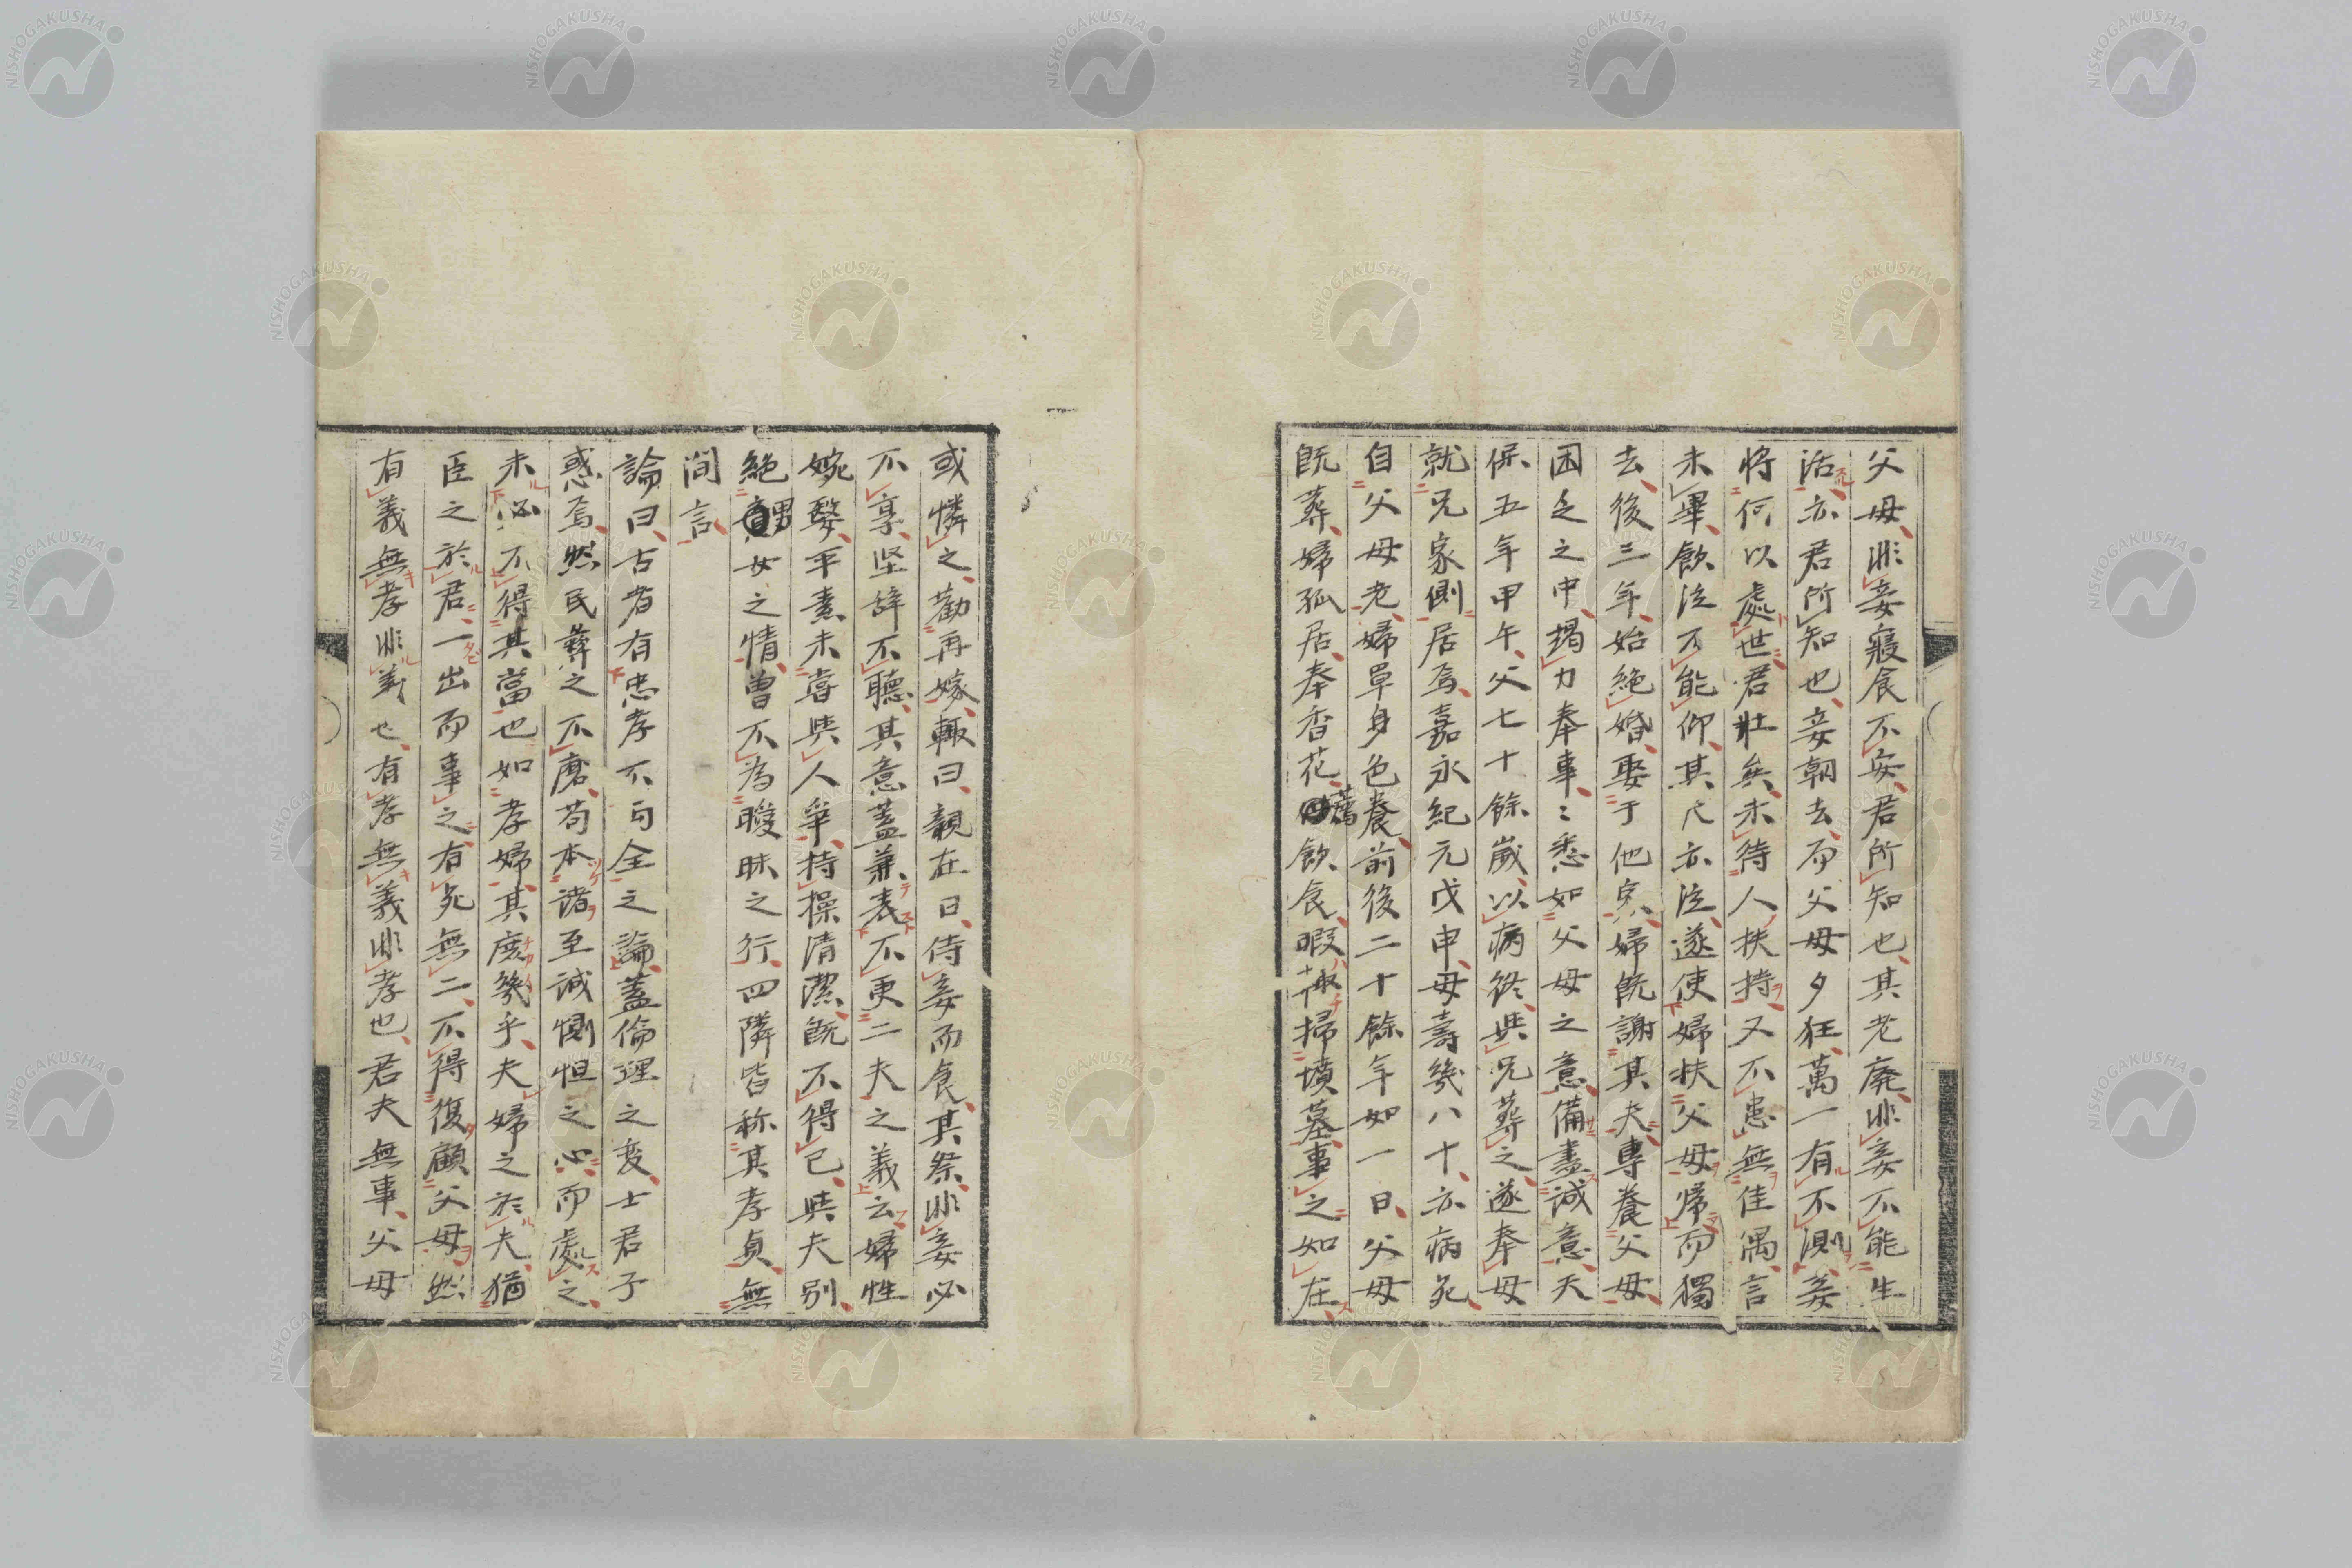 父母、非妾寢食不安、君所知也、其老廃、非妾不能生
活、亦君所知也、妾朝去、而父母夕狂、萬一有不測、妾
将何以處世、君壮矣、未待人扶持、又不患無佳偶、言
未畢、飲泣不能仰、其亦泣、遂使婦扶父母帰、而獨
去、後三年、始絶婚、娶于他、婦既謝其夫、專養父母、
困乏之中、竭力奉事、〻悉如父母之意、備盡誠意、天
保五年甲午、父七十餘歳、以病終、與兄葬之、遂奉母
就兄家側居焉、嘉永紀元戊申、母壽幾八十、亦病死、
自父母老、婦單身色養、前後二十餘年如一日、父母
既葬、婦孤居、奉香花、薦飲食、暇掃墳墓、事之如在、
或憐之、勧再嫁、輒曰、親在日、侍妾而食、其祭、非妾必
不享、堅辞不聴、其意蓋兼表不更二夫之義云、婦性
婉嫕、平素未喜與人爭、持操清潔、既不得已、與夫別、
絶男女之情、曽不為曖昧之行、四隣皆称其孝貞、無
間言、
論曰、古者有忠孝不句全之論、蓋倫理之変、士君子
惑焉、然民彝之不磨、苟本諸至誠惻怛之心、而處之、
未必不得其當也、如孝婦、其庶幾乎、夫婦之於夫、猶
臣之於君、一出而事之、有死無二、不得復顧父母、然
有義無孝、非義也、有孝無義、非孝也、君夫無事、父母
NISHOGAKUSHA